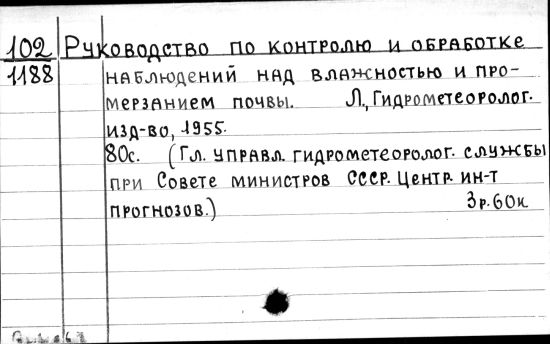 102 Руководство по контролю и обработке
1188 наблюдений над влажностью и про-
мерзанием почвы. Л., Гидрометеоролог.
изд-во, 1955.
80с. (Гл. управл. гидрометеоролог. службы
при Совете министров СССР. Центр. ин-т
прогнозов.) 3р.60к